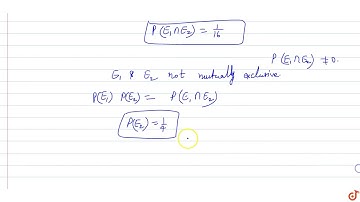 P(E₁∩E₂) = 1/16
P(E₁∩E₂) ≠ 0.
E₁ & E₂ not mutually exclusive
P(E₁) P(E₂) = P(E₁∩E₂)
P(E₂) = 1/4